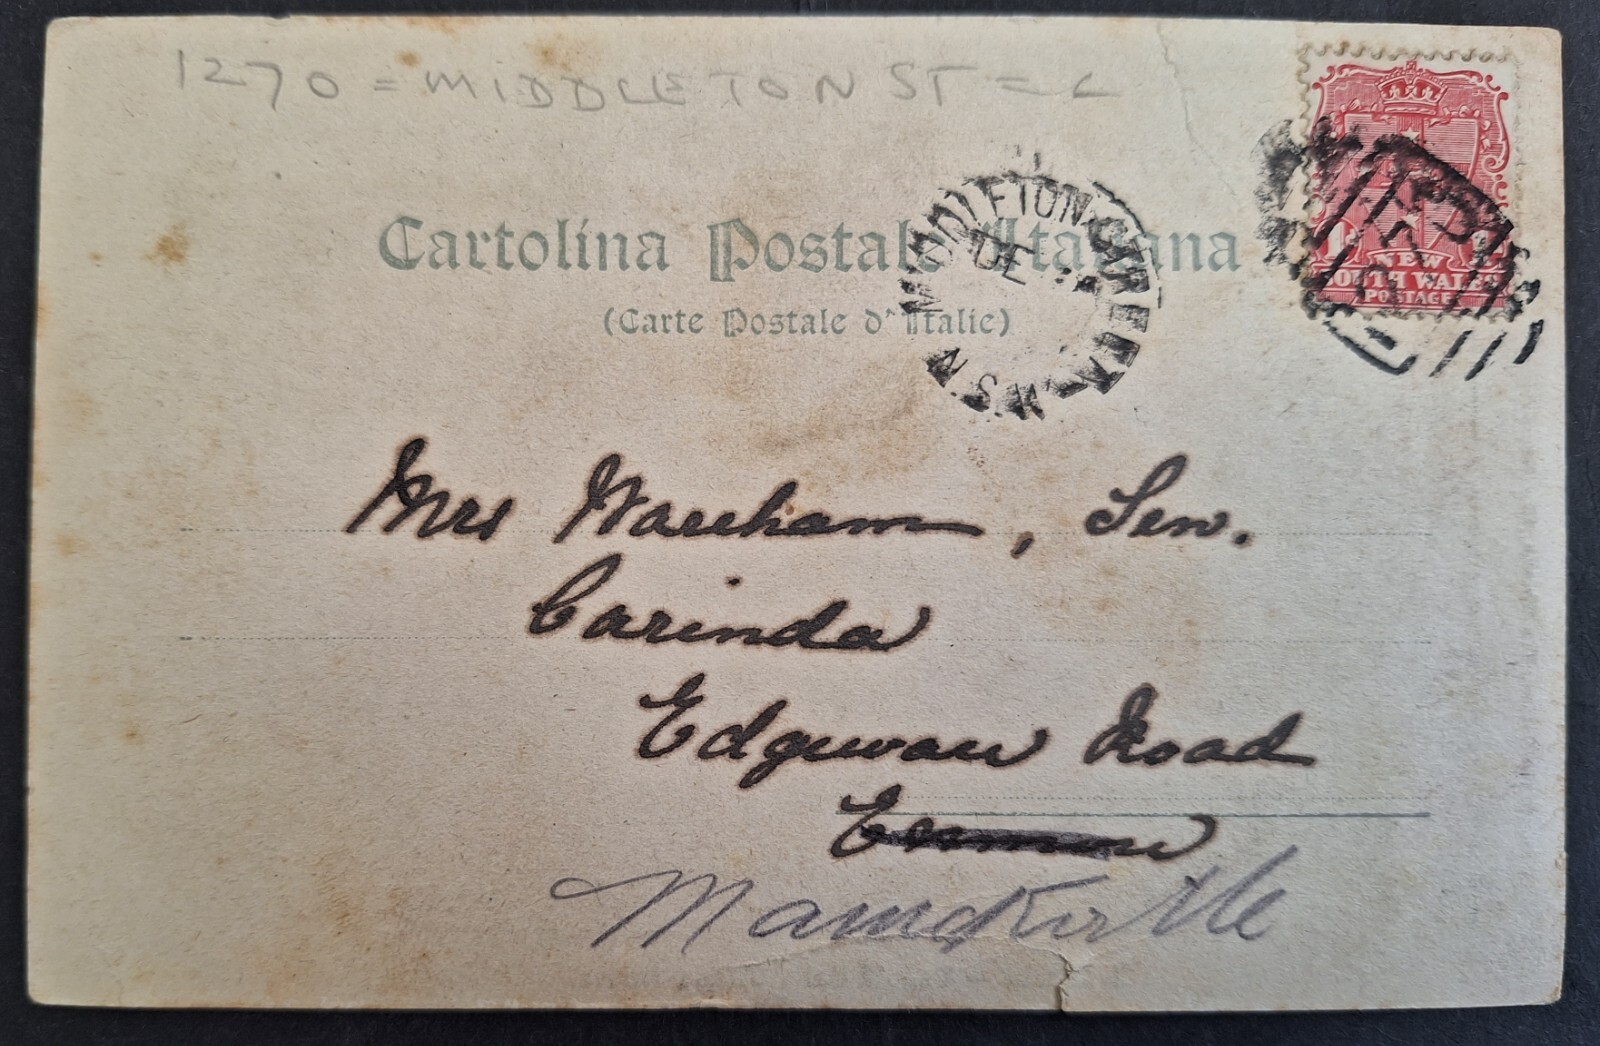 1270 = MIDDLETON ST = L
Cartolina Postale Italiana
(Carte Postale d'Italie)
MIDDLETON-STREET N.S.W
DE
NEW
SOUTH WALES
POSTAGE
Mrs Wareham, Sen.
Carinda
Edgeware Road
Enmore